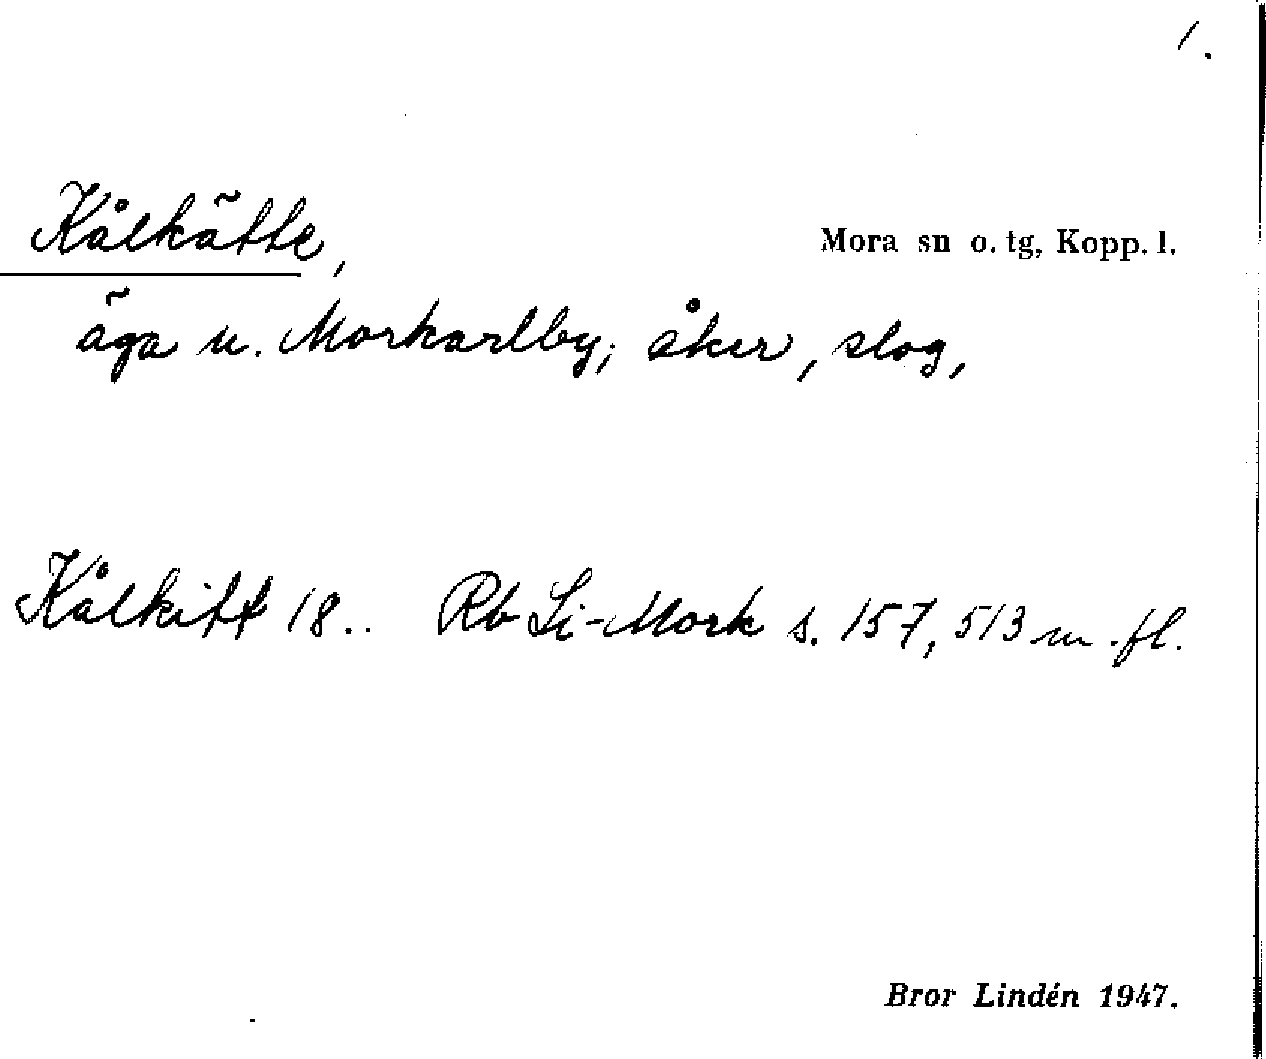 1.
Kålkätte,
Mora sn o. tg, Kopp. l.
äga u. Morkarlby; åker, slog,
Kålkitt 18.. Rb Li-Mork s. 157, 513 m.fl.
Bror Lindén 1947.